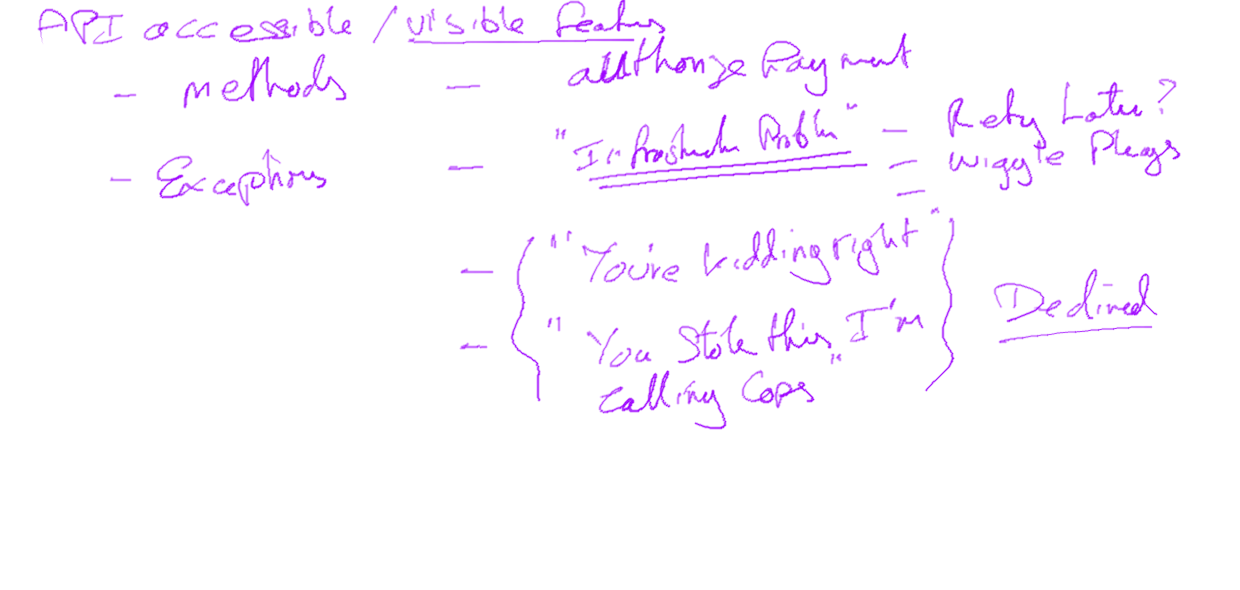 API accessible / visible Features
- methods - authorize Payment
- Exceptions - "Infrastructure Problem" - Retry Later?
- wiggle Plugs
-
- { " You're kidding right " }
- { " You Stole this, I'm calling Cops " } Declined